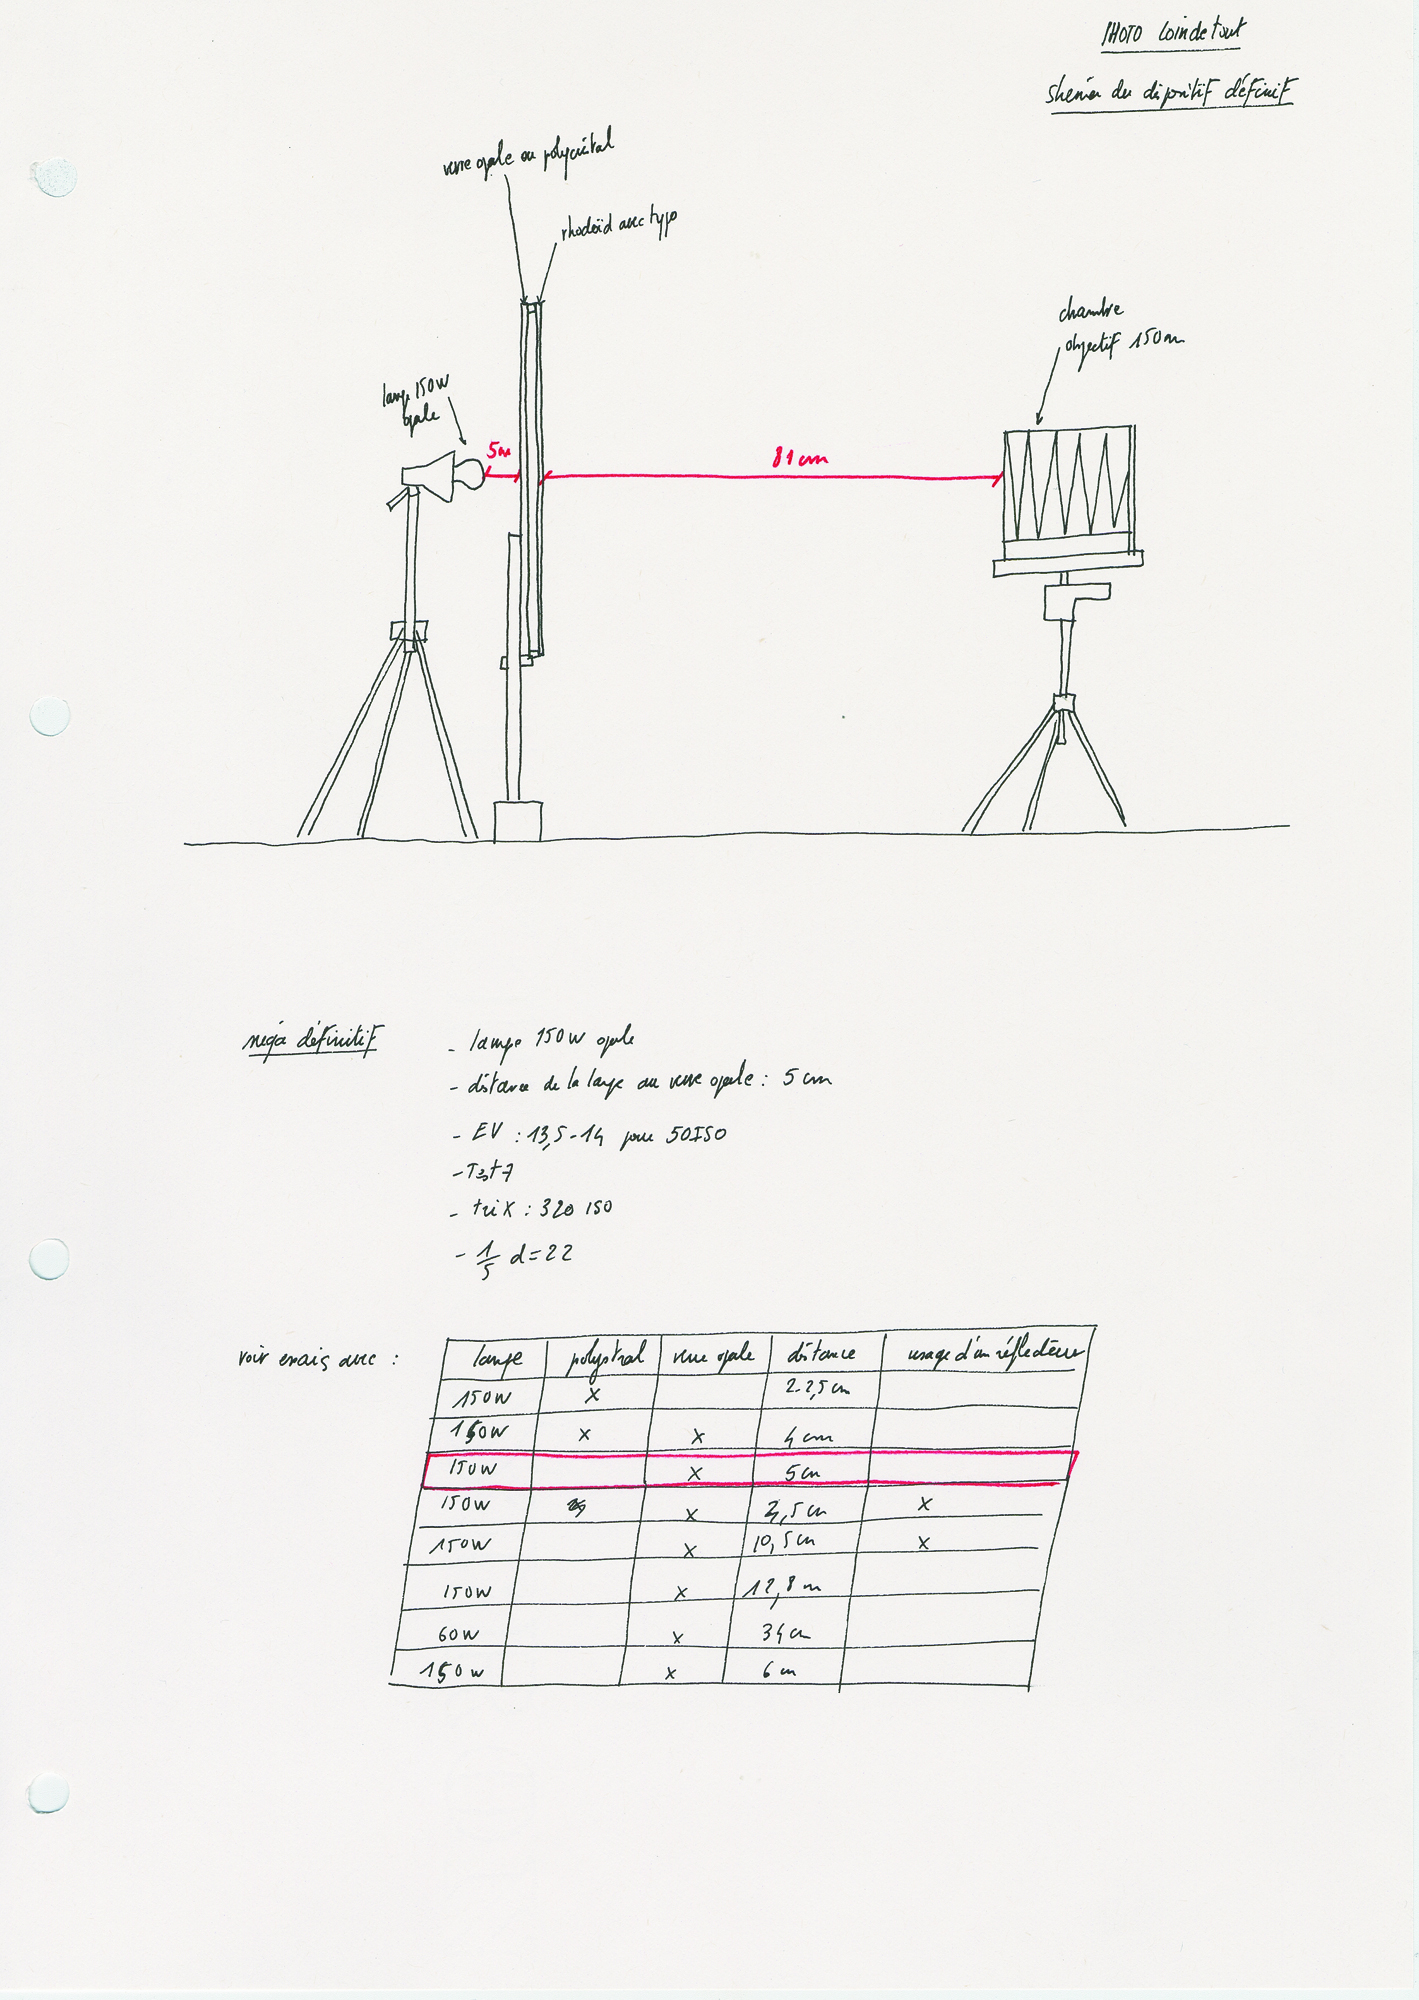 PHOTO Loindetout
shéma du dispositif définif
verre opale ou polycristal
rhodoïd avec typo
chambre
objectif 150m
lampe 150W
opale
5cm
81cm
néga définitif
- lampe 150W opale
- distance de la lampe au verre opale : 5 cm
- EV : 13,5-14 pour 50ISO
- Test 7
- triX : 320 ISO
- 1/5 d=22
voir essais avec :
lampe polystral verre opale distance usage d'un réflecteur
150W x 2-2,5cm
150W x x 4cm
150W x 5cm
150W x ,5cm x
150W x 10,5cm x
150W x 12,8m
60W x 34cm
150W x 6cm